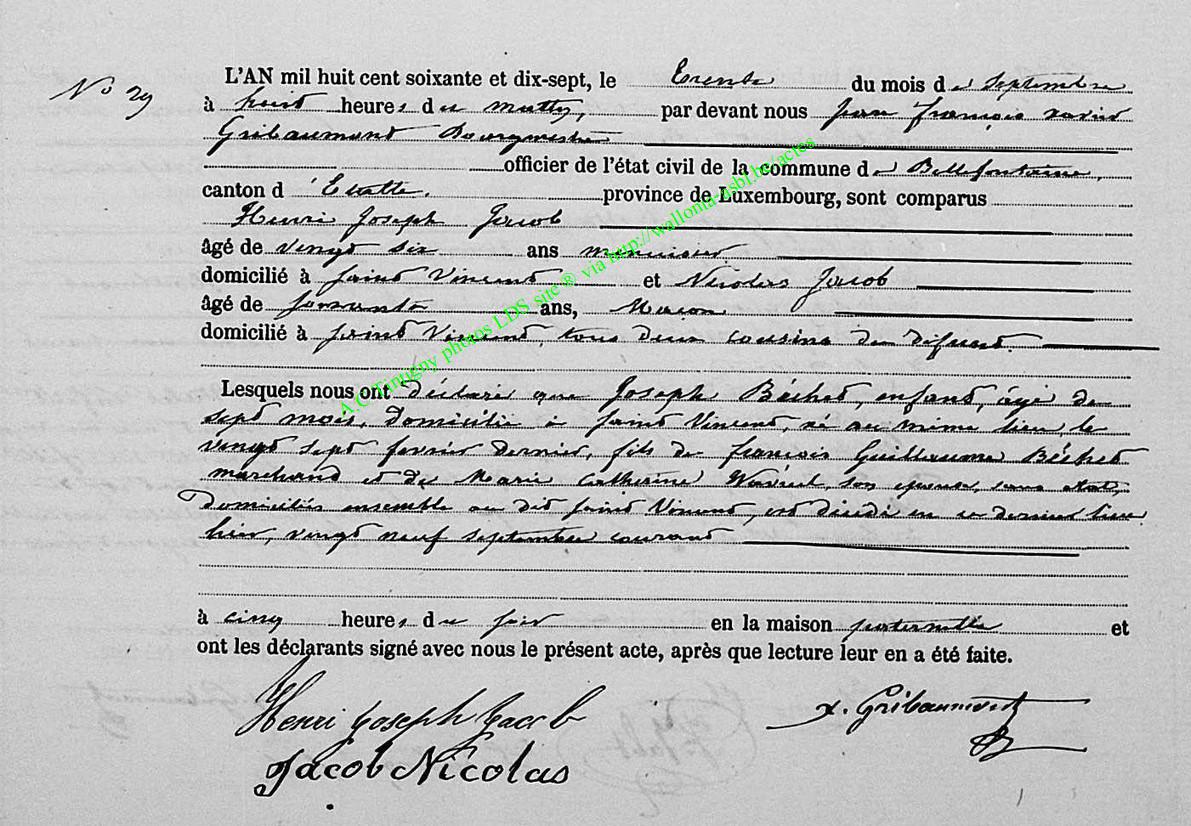 N° 29
L'AN mil huit cent soixante et dix-sept, le trente du mois de septembre
à huit heures du matin, par devant nous Jean François Xavier
Gribaumont Bourgmestre
officier de l'état civil de la commune de Bellefontaine,
canton d'Etalle. province de Luxembourg, sont comparus
Henri Joseph Jacob
âgé de vingt six ans menuisier
domicilié à Saint Vincent et Nicolas Jacob
âgé de soixante ans, Maçon
domicilié à Saint Vincent, tous deux cousins du défunt.
Lesquels nous ont déclaré que Joseph Béchet, enfant, âgé de
sept mois, domicilié à Saint Vincent, né au même lieu, le
vingt sept février dernier, fils de François Guillaume Béchet
marchand et de Marie Catherine son épouse, sans état,
domiciliés ensemble au dit Saint Vincent, est décédé en ce dernier lieu
hier, vingt neuf septembre courant
à cinq heures du soir en la maison paternelle et
ont les déclarants signé avec nous le présent acte, après que lecture leur en a été faite.
Henri Joseph Jacob
x. Gribaumont
Jacob Nicolas
A.C. Tintigny photos LDS site ® via http://wallonia-asbl.be/actes